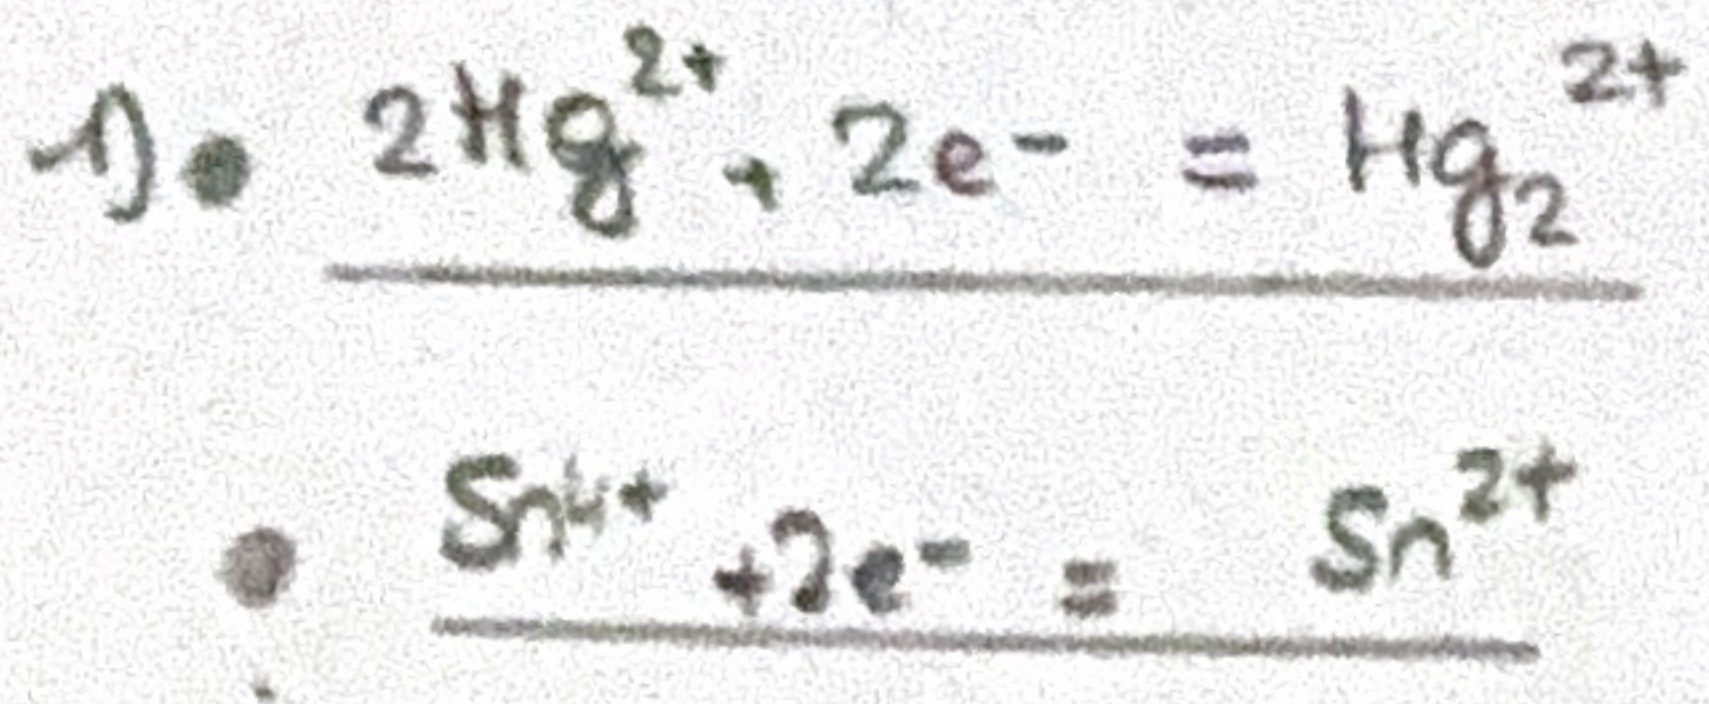 1) • 2Hg²⁺ + 2e⁻ = Hg₂²⁺
• Sn⁴⁺ +2e⁻ = Sn²⁺